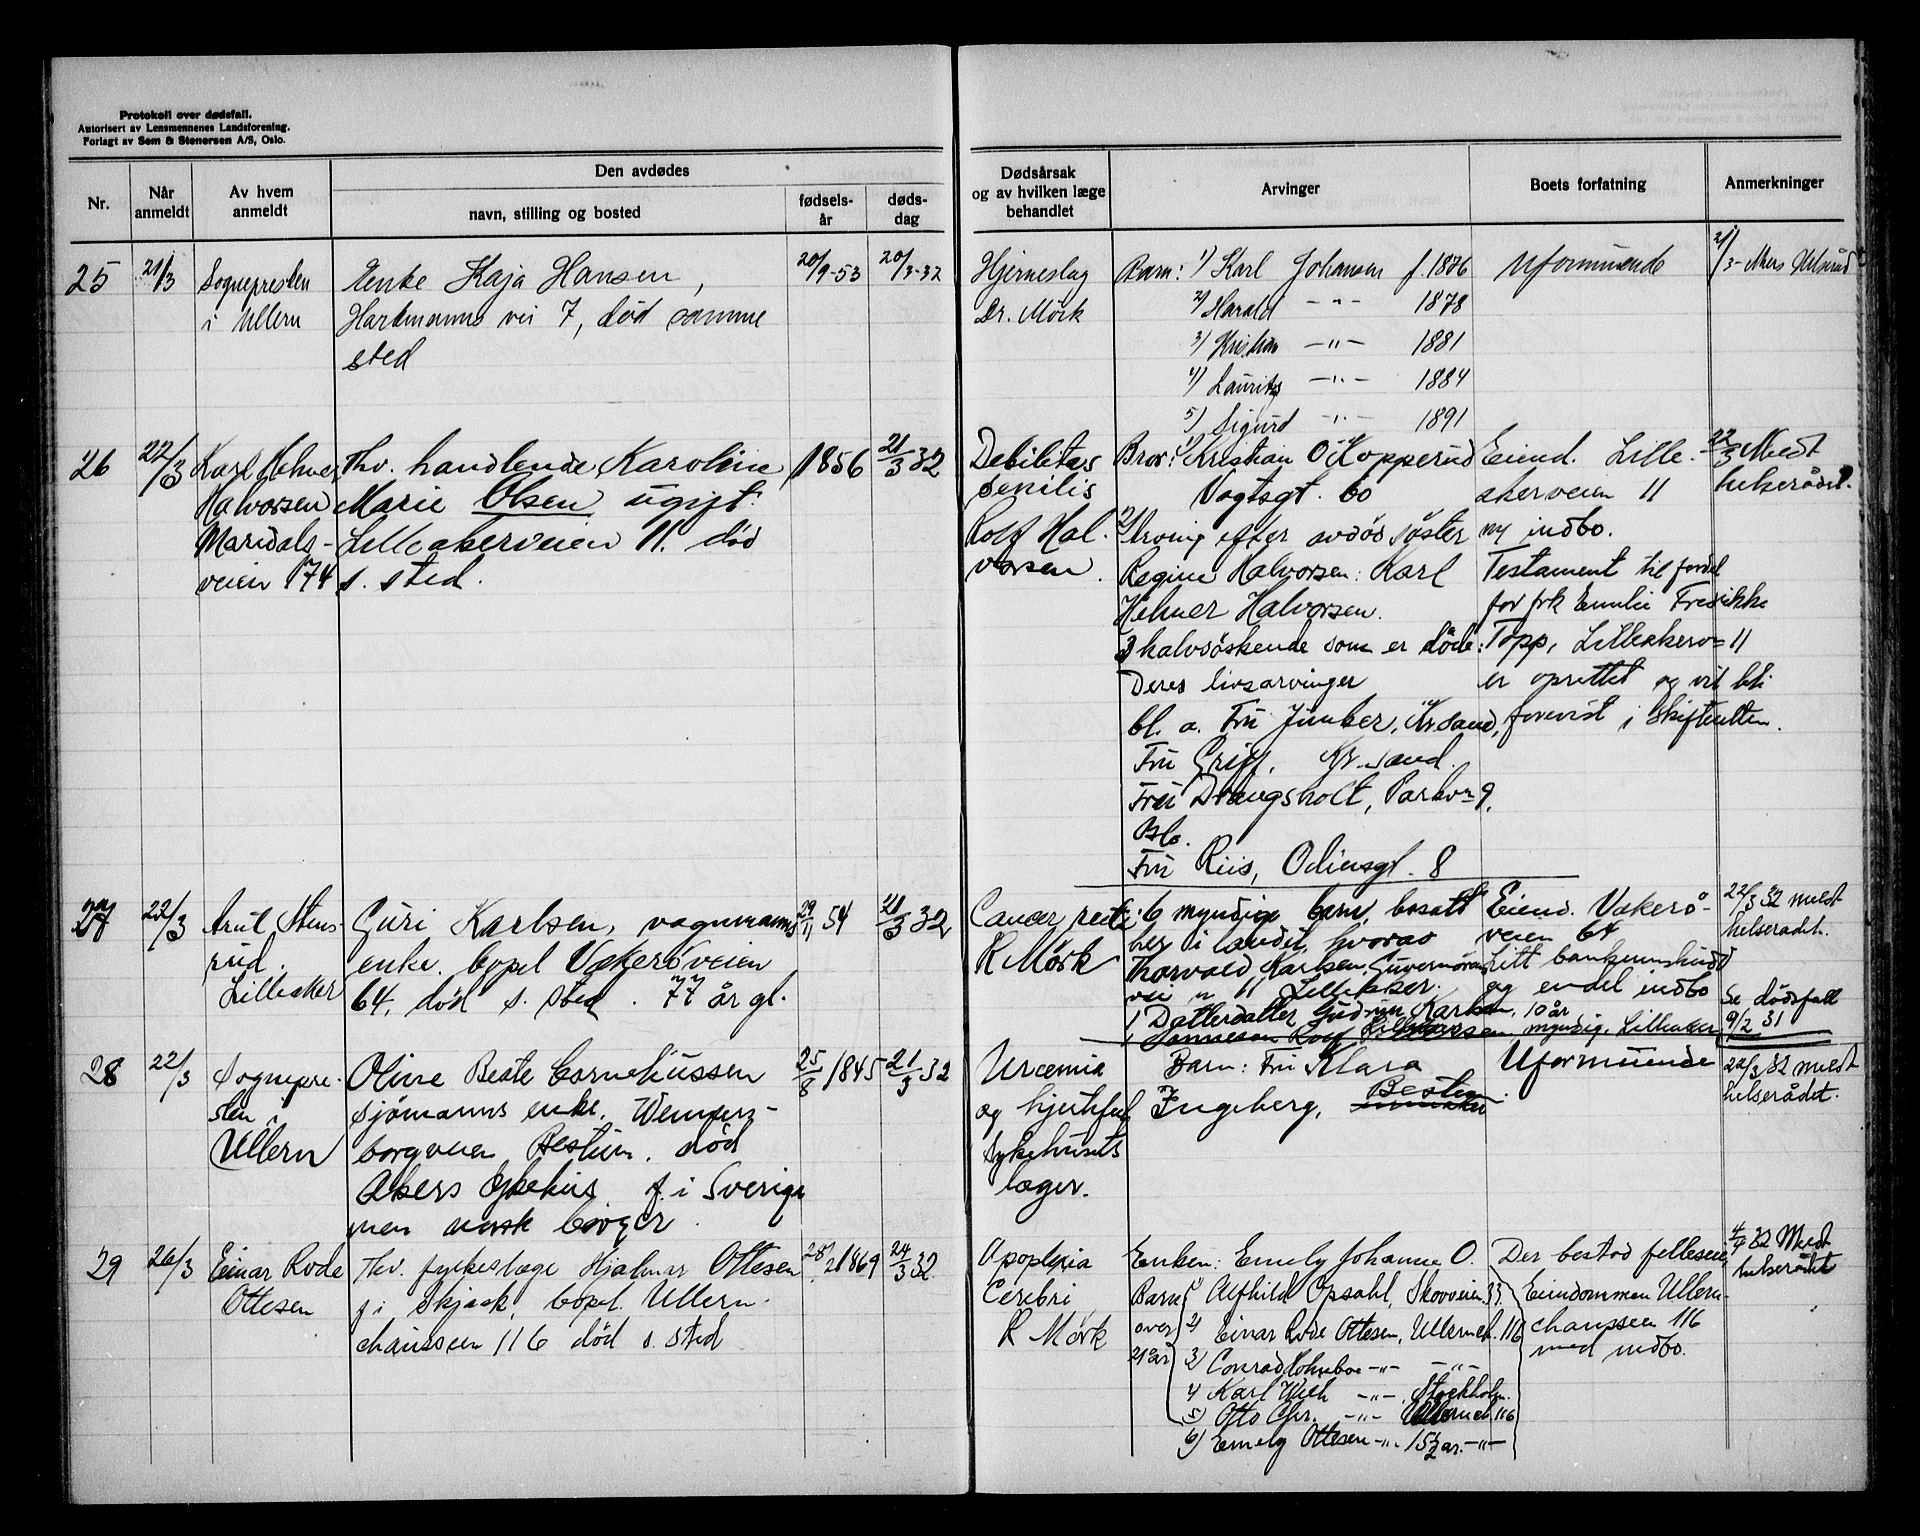 Protokoll over dødsfall.
Autorisert av Lensmennenes Landsforening.
Forlagt av Sem & Stenersen A/S, Oslo.
Nr.
Når anmeldt
Av hvem anmeldt
Den avdødes
navn, stilling og bosted
fødsels-år
døds-dag
Dødsårsak og av hvilken læge behandlet
Arvinger
Boets forfatning
Anmerkninger
25
21/3
Sognepresten
i Ullern
Enke Kaja Hansen,
Hartmanns vei 7, død samme
sted
20/9-53
20/3-32
Hjerneslag
Dr. Mørk
Barn: 1) Karl Johansen f. 1876
2) Harald -"- 1878
3) Kristian -"- 1881
4) Laurits -"- 1884
5) Sigurd -"- 1891
Uformuende
21/3 -
26
22/3
Karl Helmer
Halvorsen
Maridals-
veien 174
Fhv. handlende Karoline
Marie Olsen ugift.
Lilleakerveien 11. død
s. sted.
1856
21/3 32
Debilitas
senilis
Rolf Hal-
vorsen.
Bror: 1) Kristian O. Kopperud
Vogtsgt. 60
2) Arving efter avdød søster
Regine Halvorsen: Karl
Helmer Halvorsen.
3 halvsøskende som er døde:
Deres livsarvinger
bl. a. Fru Junker, Kr.sand,
Fru Griff, Kr.sand.
Fru Drangsholt, Parkv. 9,
Oslo.
Fru Riis, Odinsgt. 8
Eiend. Lille-
akerveien 11
og indbo.
Testament til fordel
for frk Emilie Fredrikke
Topp, Lilleakerv. 11
er oprettet og vil bli
forevist i skifteretten.
22/3 Meldt
helserådet.
27
22/3
Arut Stens-
rud.
Lilleaker
Guri Karlsen, vognmanns
enke. bopel Vækerøveien
64, død s. sted. 77 år gl.
29/11 54
21/3 32
Cancer recti
R Mørk
: 6 myndige barn, bosatt
her i landet, hvorav
Thorvald Karlsen, Guvernørens
vei 11 Lilleaker.
1 Datterdatter Gudrun Karlsen, 10 år
1 Sønnesøn Rolf myndig, Lilleaker
Eiend. Vækerø-
veien 64
Litt bankinnskudd
og endel indbo
22/3 32 meldt
helserådet.
Se dødsfall
9/2 31
28
22/3
Sognepre-
sten i
Ullern
Oline Beate Corneliussen
sjømanns enke. Wenners-
borgveien Bestum. død
Akers sykehus. f. i Sverige
men norsk borger.
25/8 1845
21/3 32
Uræmia
og hjertefeil
Sykehusets
læger.
Barn: Fru Klara
Ingeberg, Bestum.
Uformuende
22/3 32 meldt
helserådet.
29
26/3
Einar Rode
Ottesen
Fhv. fylkeslæge Hjalmar Ottesen
f. i Skjåk, bopel Ullern-
chausseen 116 død s. sted
28/2 1869
24/3 32.
Apoplexia
Cerebri
R Mørk
Enken: Emely Johanne O.
Barn over 21 år
1) Alfhild Opsahl, Skovveien 33,
2) Einar Rode Ottesen, Ullernch. 116
3) Conrad Hohnboe -"- -"-
4) Karl Wilh -"- Stockholm.
5) Otto Chr. -"- Ullernch. 116
6) Emely Ottesen -"- 15 1/2 ar. -"-
Der bestod felleseie,
Eiendommen Ullern-
chausseen 116
med indbo.
4/4 32 Meldt
helserådet